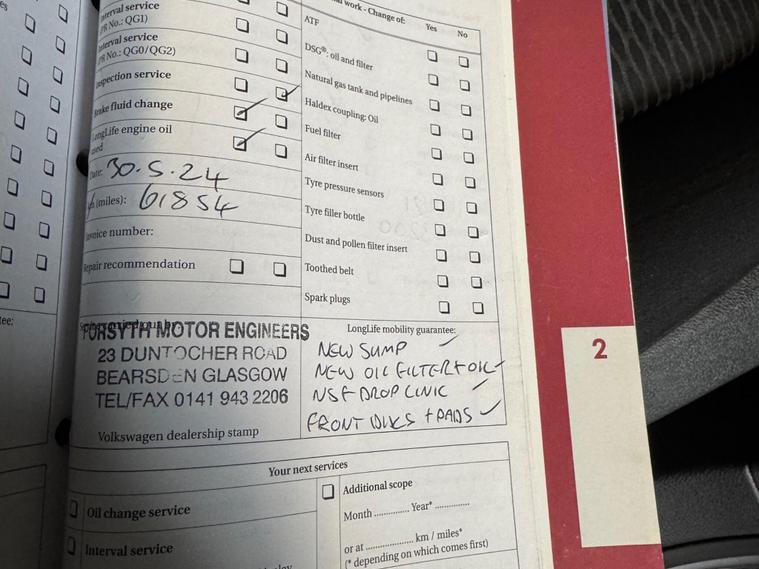 Interval service
(PR No.: QG1)
Interval service
(PR No.: QG0/QG2)
Inspection service
Brake fluid change
LongLife engine oil
used
Date: 30.5.24
(miles): 61854
Invoice number:
Repair recommendation
FORSYTH MOTOR ENGINEERS
23 DUNTOCHER ROAD
BEARSDEN GLASGOW
TEL/FAX 0141 943 2206
Volkswagen dealership stamp
work - Change of:
Yes
No
ATF
DSG®: oil and filter
Natural gas tank and pipelines
Haldex coupling: Oil
Fuel filter
Air filter insert
Tyre pressure sensors
Tyre filler bottle
Dust and pollen filter insert
Toothed belt
Spark plugs
LongLife mobility guarantee:
NEW SUMP
NEW OIL FILTER + OIL
NSF DROP LINK
FRONT DISCS + PADS
Your next services
Oil change service
Interval service
Additional scope
Month .............. Year* ..............
or at .................... km / miles*
(* depending on which comes first)
2